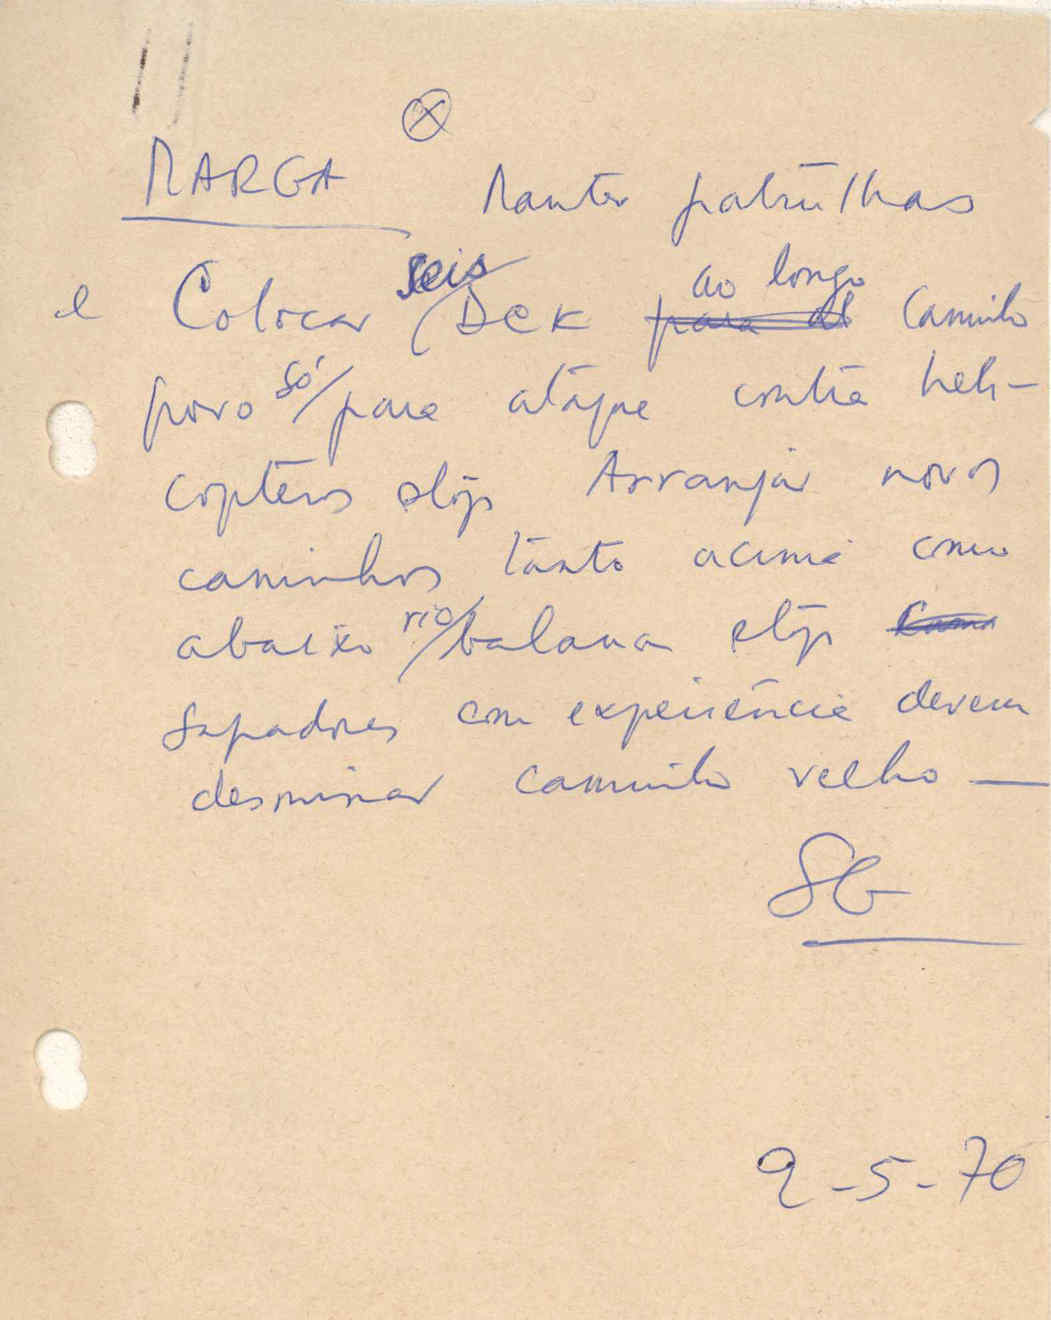 MARGA Manter patrulhas
e Colocar seis DCK ao longo caminho
povo só para ataque contra heli-
copteros stop Arranjar novos
caminhos tanto acima como
abaixo rio balana stop
Sapadores com experiência devem
desminar caminho velho —
SG
9-5-70